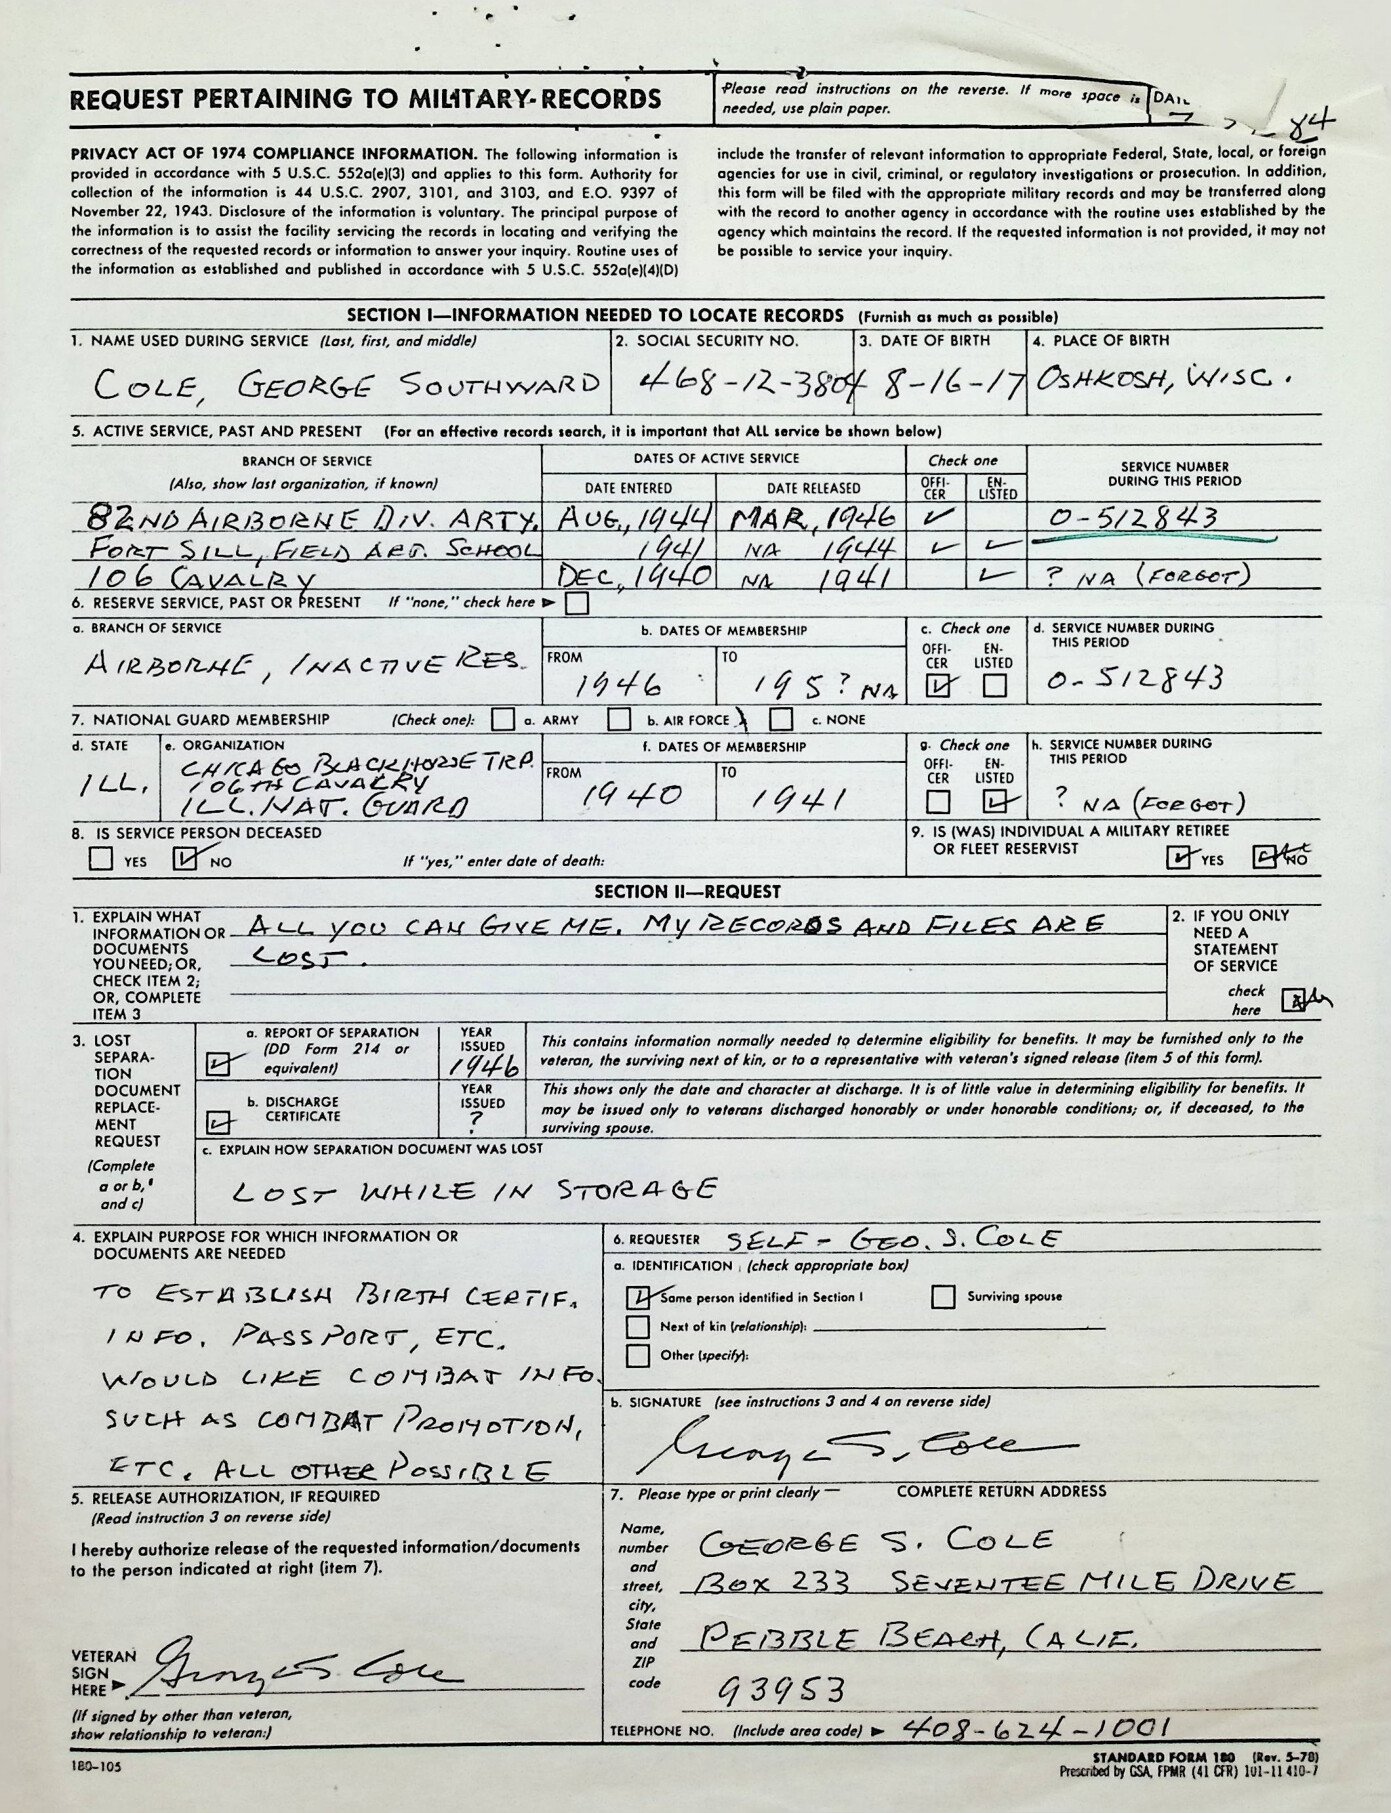 REQUEST PERTAINING TO MILITARY RECORDS
Please read instructions on the reverse. If more space is
needed, use plain paper.
84
PRIVACY ACT OF 1974 COMPLIANCE INFORMATION. The following information is
provided in accordance with 5 U.S.C. 552a(e)(3) and applies to this form. Authority for
collection of the information is 44 U.S.C. 2907, 3101, and 3103, and E.O. 9397 of
November 22, 1943. Disclosure of the information is voluntary. The principal purpose of
the information is to assist the facility servicing the records in locating and verifying the
correctness of the requested records or information to answer your inquiry. Routine uses of
the information as established and published in accordance with 5 U.S.C. 552a(e)(4)(D)
include the transfer of relevant information to appropriate Federal, State, local, or foreign
agencies for use in civil, criminal, or regulatory investigations or prosecution. In addition,
this form will be filed with the appropriate military records and may be transferred along
with the record to another agency in accordance with the routine uses established by the
agency which maintains the record. If the requested information is not provided, it may not
be possible to service your inquiry.
SECTION I—INFORMATION NEEDED TO LOCATE RECORDS (Furnish as much as possible)
1. NAME USED DURING SERVICE (Last, first, and middle)
COLE, GEORGE SOUTHWARD
2. SOCIAL SECURITY NO.
468-12-3804
3. DATE OF BIRTH
8-16-17
4. PLACE OF BIRTH
OSHKOSH, WISC.
5. ACTIVE SERVICE, PAST AND PRESENT (For an effective records search, it is important that ALL service be shown below)
BRANCH OF SERVICE
(Also, show last organization, if known)
DATES OF ACTIVE SERVICE
DATE ENTERED
DATE RELEASED
Check one
OFFI-
CER
EN-
LISTED
SERVICE NUMBER
DURING THIS PERIOD
82ND AIRBORNE DIV. ARTY. AUG., 1944 MAR, 1946 O-512843
FORT SILL, FIELD ART. SCHOOL 1941 NA 1944
106 CAVALRY DEC, 1940 NA 1941 ? NA (FORGOT)
6. RESERVE SERVICE, PAST OR PRESENT If "none," check here
a. BRANCH OF SERVICE
AIRBORNE, INACTIVE RES.
b. DATES OF MEMBERSHIP
FROM
1946
TO
195? NA
c. Check one
OFFI-
CER
EN-
LISTED
d. SERVICE NUMBER DURING
THIS PERIOD
O-512843
7. NATIONAL GUARD MEMBERSHIP (Check one): a. ARMY b. AIR FORCE c. NONE
d. STATE
ILL.
e. ORGANIZATION
CHICAGO BLACKHORSE TRP.
106TH CAVALRY
ILL. NAT. GUARD
f. DATES OF MEMBERSHIP
FROM
1940
TO
1941
g. Check one
OFFI-
CER
EN-
LISTED
h. SERVICE NUMBER DURING
THIS PERIOD
? NA (FORGOT)
8. IS SERVICE PERSON DECEASED
YES NO If "yes," enter date of death:
9. IS (WAS) INDIVIDUAL A MILITARY RETIREE
OR FLEET RESERVIST
YES NO
SECTION II—REQUEST
1. EXPLAIN WHAT
INFORMATION OR
DOCUMENTS
YOU NEED; OR,
CHECK ITEM 2;
OR, COMPLETE
ITEM 3
ALL YOU CAN GIVE ME. MY RECORDS AND FILES ARE
LOST.
2. IF YOU ONLY
NEED A
STATEMENT
OF SERVICE
check
here
3. LOST
SEPARA-
TION
DOCUMENT
REPLACE-
MENT
REQUEST
(Complete
a or b,
and c)
a. REPORT OF SEPARATION
(DD Form 214 or
equivalent)
YEAR
ISSUED
1946
This contains information normally needed to determine eligibility for benefits. It may be furnished only to the
veteran, the surviving next of kin, or to a representative with veteran's signed release (item 5 of this form).
b. DISCHARGE
CERTIFICATE
YEAR
ISSUED
?
This shows only the date and character at discharge. It is of little value in determining eligibility for benefits. It
may be issued only to veterans discharged honorably or under honorable conditions; or, if deceased, to the
surviving spouse.
c. EXPLAIN HOW SEPARATION DOCUMENT WAS LOST
LOST WHILE IN STORAGE
4. EXPLAIN PURPOSE FOR WHICH INFORMATION OR
DOCUMENTS ARE NEEDED
TO ESTABLISH BIRTH CERTIF.
INFO. PASSPORT, ETC.
WOULD LIKE COMBAT INFO.
SUCH AS COMBAT PROMOTION,
ETC. ALL OTHER POSSIBLE
6. REQUESTER SELF - GEO. S. COLE
a. IDENTIFICATION (check appropriate box)
Same person identified in Section I
Surviving spouse
Next of kin (relationship):
Other (specify):
b. SIGNATURE (see instructions 3 and 4 on reverse side)
George S. Cole
5. RELEASE AUTHORIZATION, IF REQUIRED
(Read instruction 3 on reverse side)
I hereby authorize release of the requested information/documents
to the person indicated at right (item 7).
VETERAN
SIGN
HERE
George S. Cole
(If signed by other than veteran,
show relationship to veteran:)
7. Please type or print clearly — COMPLETE RETURN ADDRESS
Name,
number
and
street,
city,
State
and
ZIP
code
GEORGE S. COLE
BOX 233 SEVENTEE MILE DRIVE
PEBBLE BEACH, CALIF.
93953
TELEPHONE NO. (Include area code) 408-624-1001
180-105
STANDARD FORM 180 (Rev. 5-78)
Prescribed by GSA, FPMR (41 CFR) 101-11 410-7